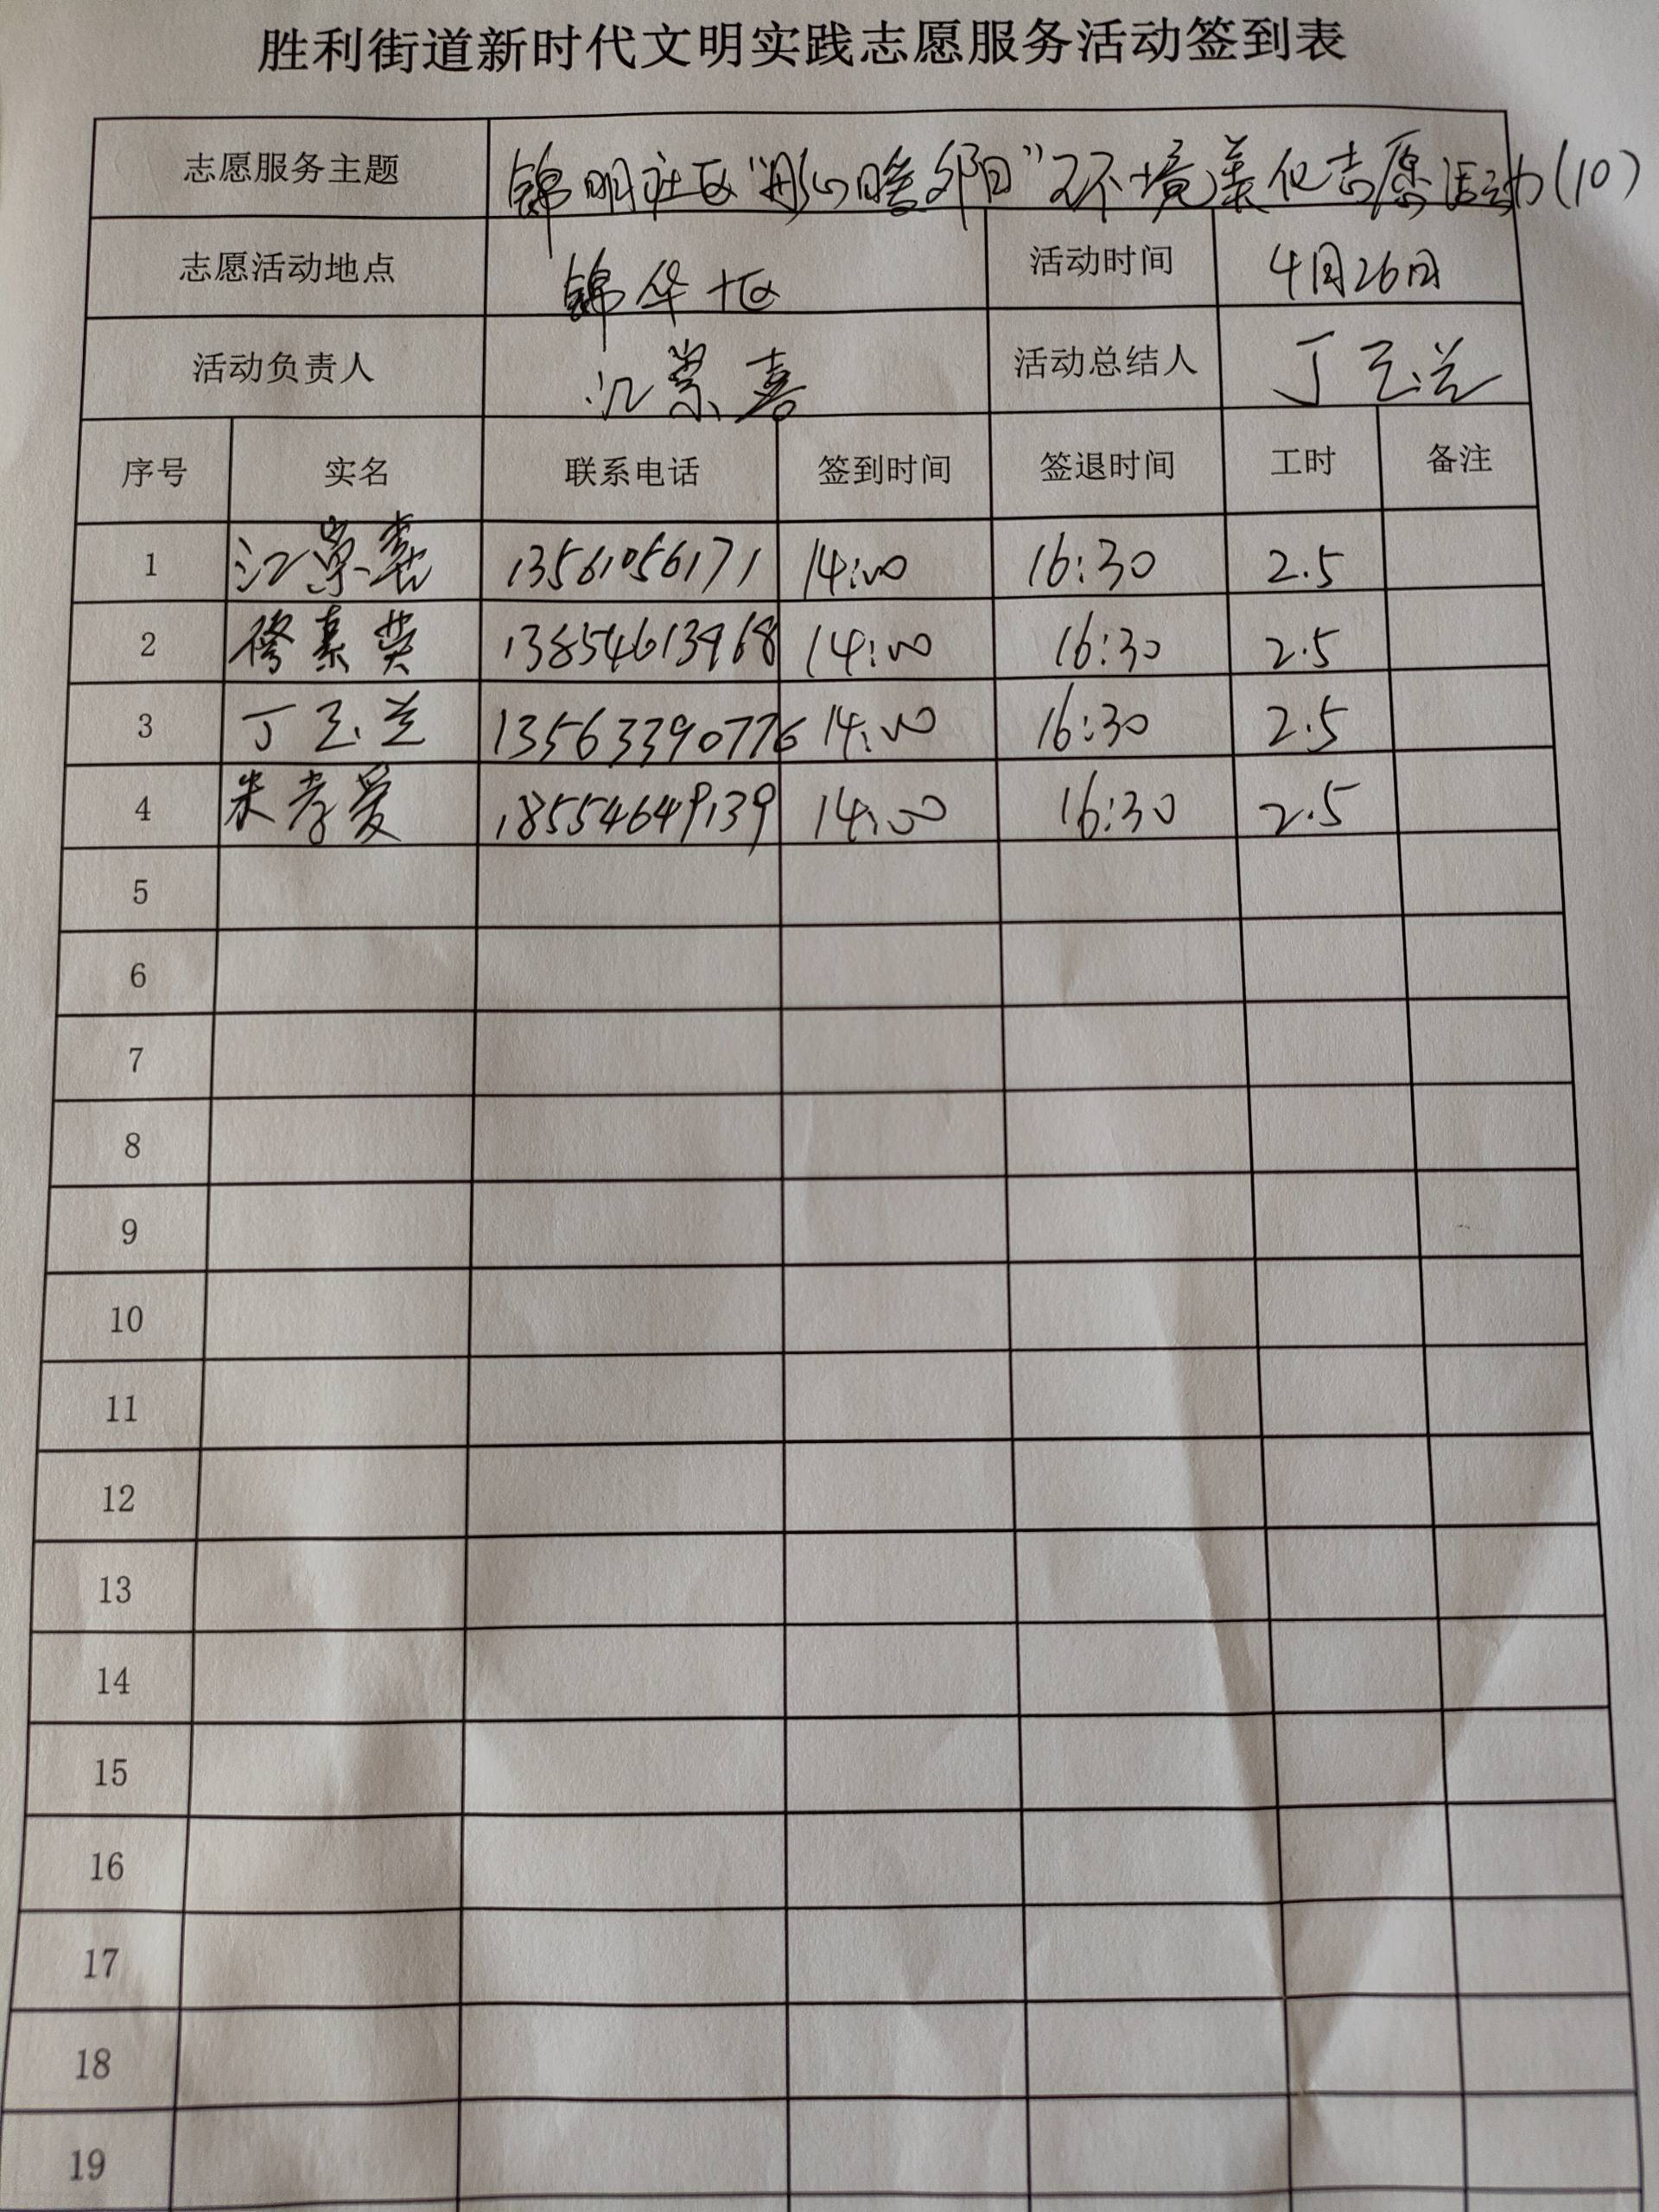 胜利街道新时代文明实践志愿服务活动签到表
志愿服务主题 锦明社区"彤心暖夕阳"环境美化志愿活动(10)
志愿活动地点 锦华十区 活动时间 4月26日
活动负责人 江崇喜 活动总结人 丁玉兰
序号 实名 联系电话 签到时间 签退时间 工时 备注
1 江崇喜 13561056171 14:00 16:30 2.5
2 修素英 13854613968 14:00 16:30 2.5
3 丁玉兰 13563390776 14:00 16:30 2.5
4 朱孝爱 18554649139 14:00 16:30 2.5
5
6
7
8
9
10
11
12
13
14
15
16
17
18
19